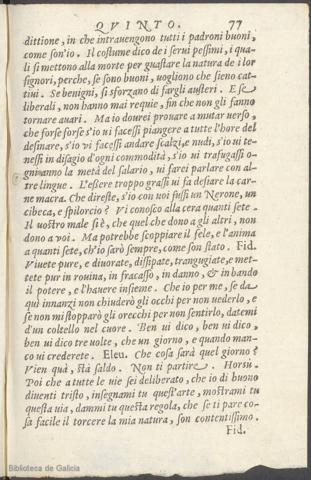 QVINTO. 77
dittione, in che intrauengono tutti i padroni buoni,
come son'io. Il costume dico de i serui pessimi, i qua-
li si mettono alla morte per guastare la natura de i lor
signori, perche, se sono buoni, uogliono che sieno cat-
tiui. Se benigni, si sforzano di fargli austeri. E se
liberali, non hanno mai requie, fin che non gli fanno
tornare auari. Ma io dourei prouare a mutar uerso,
che forse forse s'io ui facessi piangere a tutte l'hore del
desinare, s'io vi facessi andare scalzi, e nudi, s'io ui te-
nessi in disagio d'ogni commodità, s'io ui trafugassi o-
gni anno la metà del salario, ui farei parlare con al-
tre lingue. L'essere troppo grassi ui fa desiare la car-
ne macra. Che direste, s'io con uoi fussi un Nerone, un
cibeca, e spilorcio? Vi conosco alla cera quanti sete.
Il uostro male si è, che quel che dono a gli altri, non
dono a voi. Ma potrebbe scoppiare il fele, e l'anima
a quanti sete, ch'io sarò sempre, come son stato. Fid.
Viuete pure, e diuorate, dissipate, trangugiate, e met-
tete pur in rouina, in fracasso, in danno, & in bando
il potere, e l'hauere insieme. Che io per me, se da
qui innanzi non chiuderò gli occhi per non uederlo, e
se non mi stopparò gli orecchi per non sentirlo, datemi
d'un coltello nel cuore. Ben ui dico, ben ui dico,
ben ui dico tre volte, che un giorno, e quando man-
co ui crederete. Eleu. Che cosa sarà quel giorno?
Vien quà, stà saldo. Non ti partire. Horsù.
Poi che a tutte le uie sei deliberato, che io di buono
diuenti tristo, insegnami tu quest'arte, mostrami tu
questa uia, dammi tu questa regola, che se ti pare co-
sa facile il torcere la mia natura, son contentissimo.
Fid.
Biblioteca de Galicia